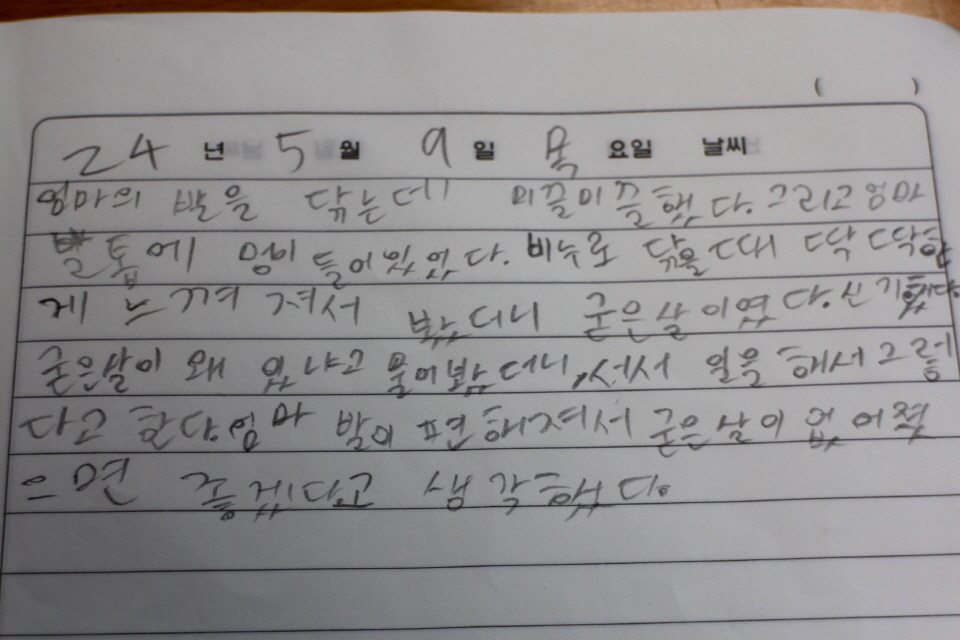 ( )
24 년 5 월 9 일 목 요일 날씨
엄마의 발을 닦는데 미끌미끌했다. 그리고 엄마
발톱에 멍이 들어있었다. 비누로 닦을 때 딱딱하
게 느껴져서 봤더니 굳은살이였다. 신기했다.
굳은살이 왜 있냐고 물어봤더니, 서서 일을 해서 그렇
다고 한다. 엄마 발이 편해져서 굳은살이 없어졌
으면 좋겠다고 생각했다.